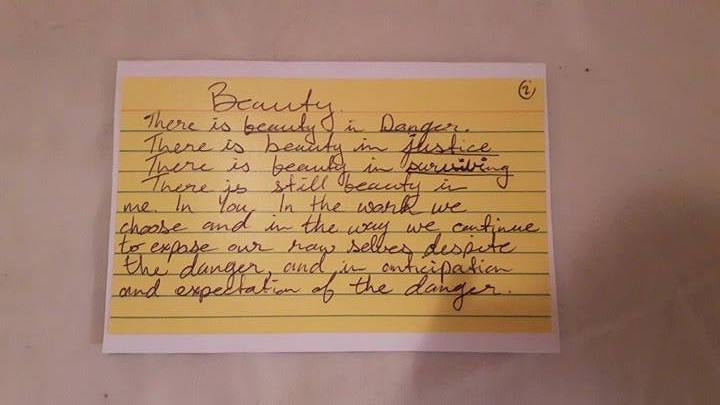 2
Beauty.
There is beauty in Danger.
There is beauty in justice
There is beauty in surviving
There is still beauty in
me. In You. In the work we
choose and in the way we continue
to expose our raw selves despite
the danger, and in anticipation
and expectation of the danger.